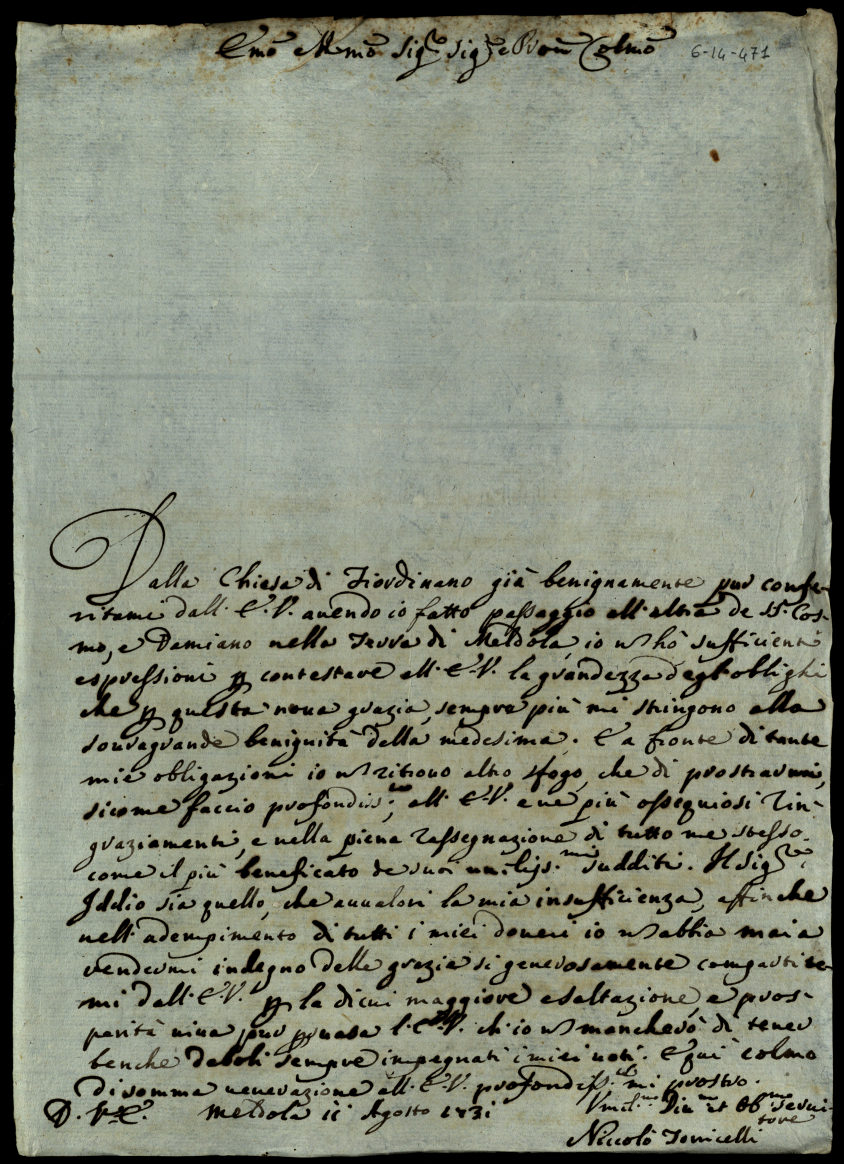 Emo e Rmo Sigr Sigr e Pron Colmo 6-14-471
Dalla Chiesa di Fiordinano già benignamente pur confe-
ritami dall' E.V. avendo io fatto passaggio all'altra de SS. Cos-
mo, e Damiano nella Terra di Meldola, io nō hò sufficienti
espressioni p contestare all' E.V. la grandezza degl'oblighi
che p questa nova grazia, sempre più mi stringono alla
sovragrande benignità della medesima. E a fronte di tante
mie obligazioni io nō ritrovo altro sfogo, che di prostrarmi,
sicome faccio profondiste all' E.V. ene più ossequiosi rin-
graziamenti, e nella piena rassegnazione di tutto me stesso.
come il più beneficato de suoi umilissmi sudditi. Il Sigre
Iddio sia quello, che avvalori la mia insufficienza, affinche
nell'adempimento di tutti i miei doveri io nō abbia mai a
rendermi indegno delle grazie si generosamente compartite-
mi dall' E.V. p la di cui maggiore esaltazione, e pros-
perità viva pur psuasa l'E.V. ch'io nō mancherò di tener
benche deboli sempre impegnati i miei voti. E qui colmo
di somma venerazione all' E.V. profondisste mi prostro.
D. V. E. Meldola 11 Agosto 1731
Umilmo Divmo et Obmo Servi-
tore
Niccolò Torricelli